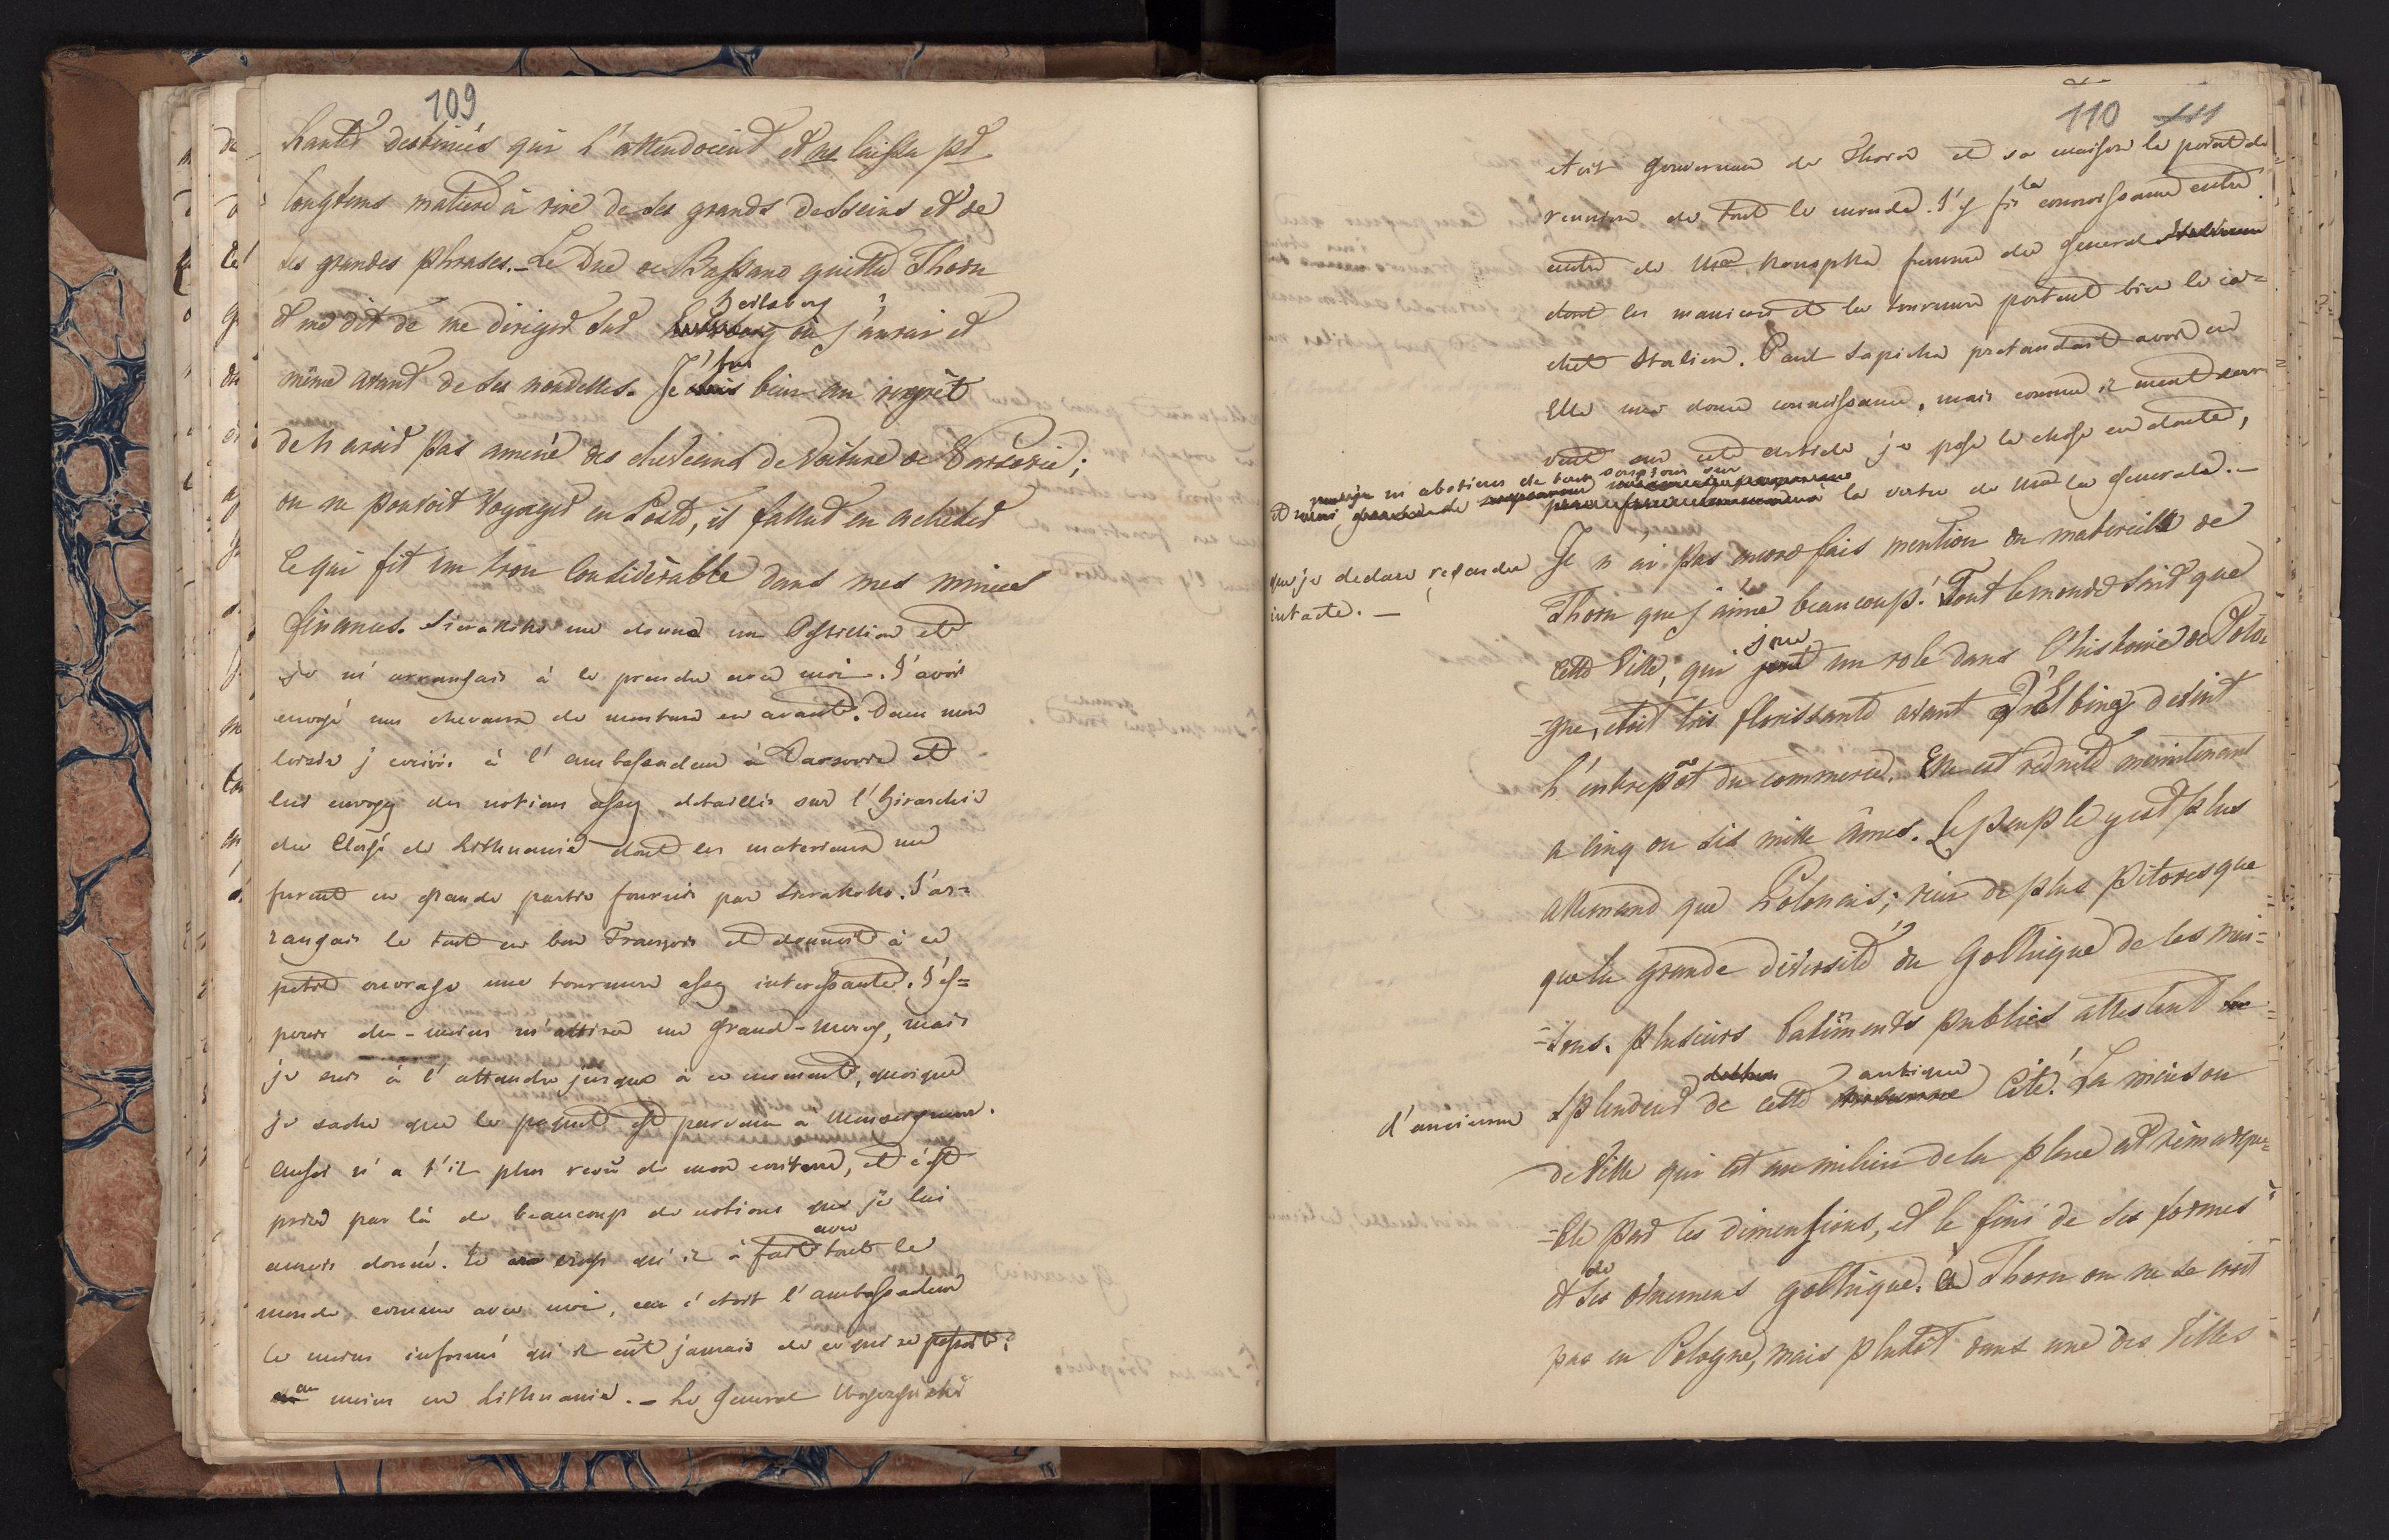 109
hautes destinées qui l'attendoient et ne laissa pas
longtems matiere à rire de ses grands desseins et de
ses grandes phrases. - Le Duc de Bassano quitta Thorn
et me dit de me diriger sur Heilsberg où j'aurai et
même avant de ses nouvelles. J'eus bien au regrèt
de n avoir pas amené des chevaux de voiture de Varsovie;
on ne pouvoit voyager en Poste, il fallut en acheter
ce qui fit un trou considérable dans mes minces
finances. Sierakoski me donna un Postillion et
je m' arrangais à le prendre avec moi. J'avois
envoyé mes chevaux de monture en avant. Dans mon
loisir j'ecrivis à l' ambassadeur à Varsovie et
lui envoyai des notions assez detaillés sur l'hirarchie
du Clergé de Lithuanie dont les materiaux me
furent en grande partie fournis par Sierakoski. J'ar=
rangais le tout en bon François et donnois à ce
petit ouvrage une tournure assez interessante. J'es=
perois du-moins m'attirer un grand-mercy, mais
je suis à l' attendre jusque à ce moment, quoique
je sache que le paquet est parvenu à Monseigneur.
Aussi n' a t'il plus reçu de mon ecriture, et c'est
privé par là de beaucoup de notions que je lui
aurois donné. Je crois qu'il a fait avec tout le
monde comme avec moi, car c'etoit l'ambassadeur
le moins informé qu'il eût jamais de ce qui se passoit
au moins en Lithuanie. - Le General Woyczynski
110 111
etoit gouverneur de Thorn et sa maison le point de
reunion de tout le monde. J'y fis la connoissance entre
autre de Mde Konopka femme du general
dont les manieres et la tournure portent bien le ca=
chet Italien. Paul Sapieha pretendait avoir eu
Elle une douce connoissance, mais comme il ment sou
vent sur cet article je pose la chose en doute,
et ni abstiens de tout soupçon sur la vertu de Mde la generale. -
que je declare regarder
intacte. -
Je n'ai pas encore fais mention du materiell de
Thorn que j'aime beaucoup. Tout le monde sait que
cette Ville, qui joua un role dans l'histoire de Polo=
=gne, etoit tres florissante avant qu'Elbing devint
l'entrepôt du commerce. Elle est reduite maintenant
a cinq ou six mille âmes. Le peuple y est plus
allemand que Polonais; rien de plus pitoresque
que la grande diversité du Gothique de ses mai=
=sons. plusieurs batiments publics attestent la
d'ancienne splendeur de cette antique Cité. La maison
de Ville qui est au milieu de la place est rèmarqua=
=ble par les dimensions, et le fini de ses formes
et de ses ornemens gothique. A Thorn on ne se croit
pas en Pologne, mais plutôt dans une des Villes